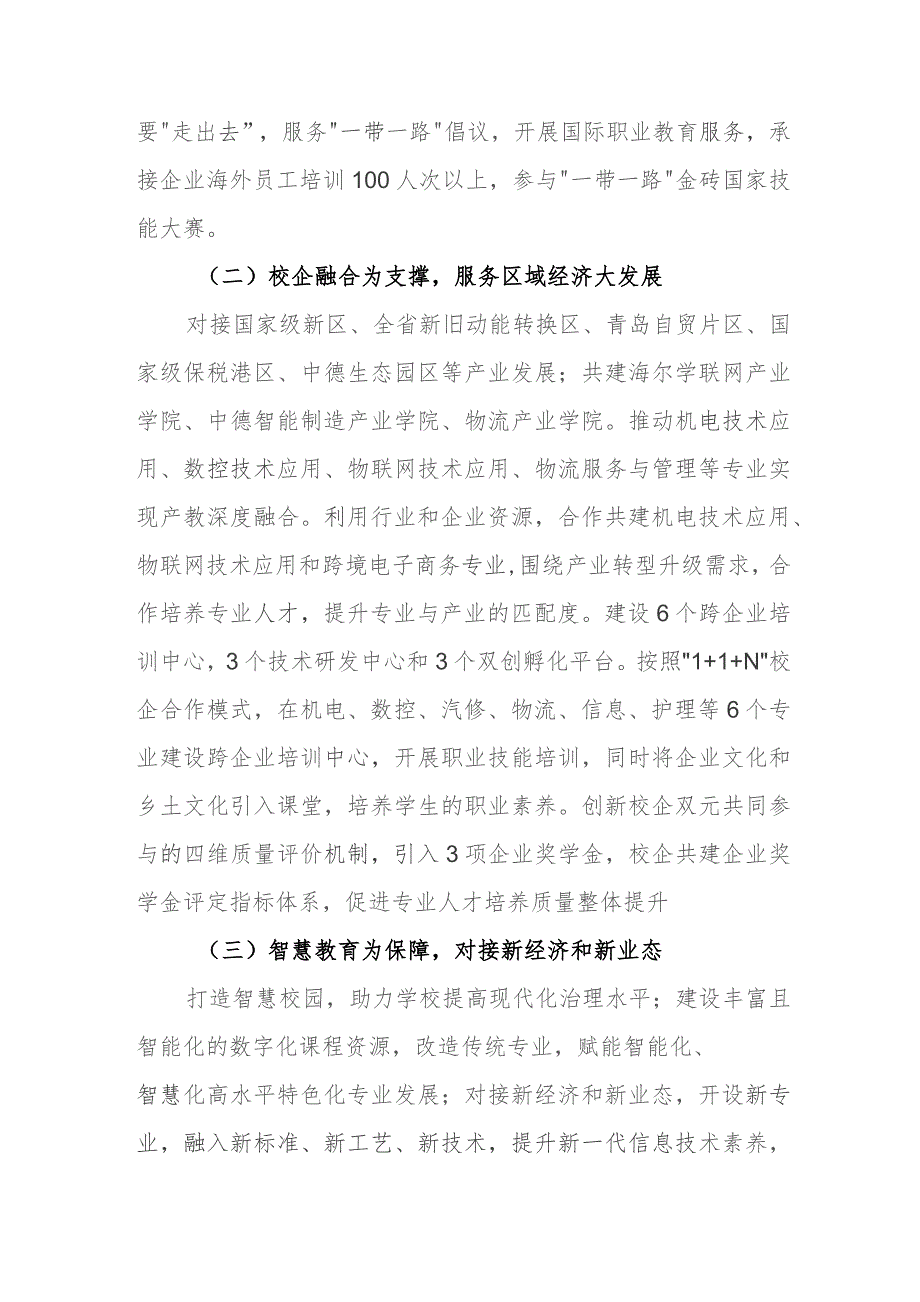 要"走出去”，服务"一带一路"倡议，开展国际职业教育服务，承
接企业海外员工培训100人次以上，参与"一带一路"金砖国家技
能大赛。
（二）校企融合为支撑，服务区域经济大发展
对接国家级新区、全省新旧动能转换区、青岛自贸片区、国
家级保税港区、中德生态园区等产业发展；共建海尔学联网产业
学院、中德智能制造产业学院、物流产业学院。推动机电技术应
用、数控技术应用、物联网技术应用、物流服务与管理等专业实
现产教深度融合。利用行业和企业资源，合作共建机电技术应用、
物联网技术应用和跨境电子商务专业,围绕产业转型升级需求，合
作培养专业人才，提升专业与产业的匹配度。建设6个跨企业培
训中心，3个技术研发中心和3个双创孵化平台。按照"1+1+N"校
企合作模式，在机电、数控、汽修、物流、信息、护理等6个专
业建设跨企业培训中心，开展职业技能培训，同时将企业文化和
乡土文化引入课堂，培养学生的职业素养。创新校企双元共同参
与的四维质量评价机制，引入3项企业奖学金，校企共建企业奖
学金评定指标体系，促进专业人才培养质量整体提升
（三）智慧教育为保障，对接新经济和新业态
打造智慧校园，助力学校提高现代化治理水平；建设丰富且
智能化的数字化课程资源，改造传统专业，赋能智能化、
智慧化高水平特色化专业发展；对接新经济和新业态，开设新专
业，融入新标准、新工艺、新技术，提升新一代信息技术素养，